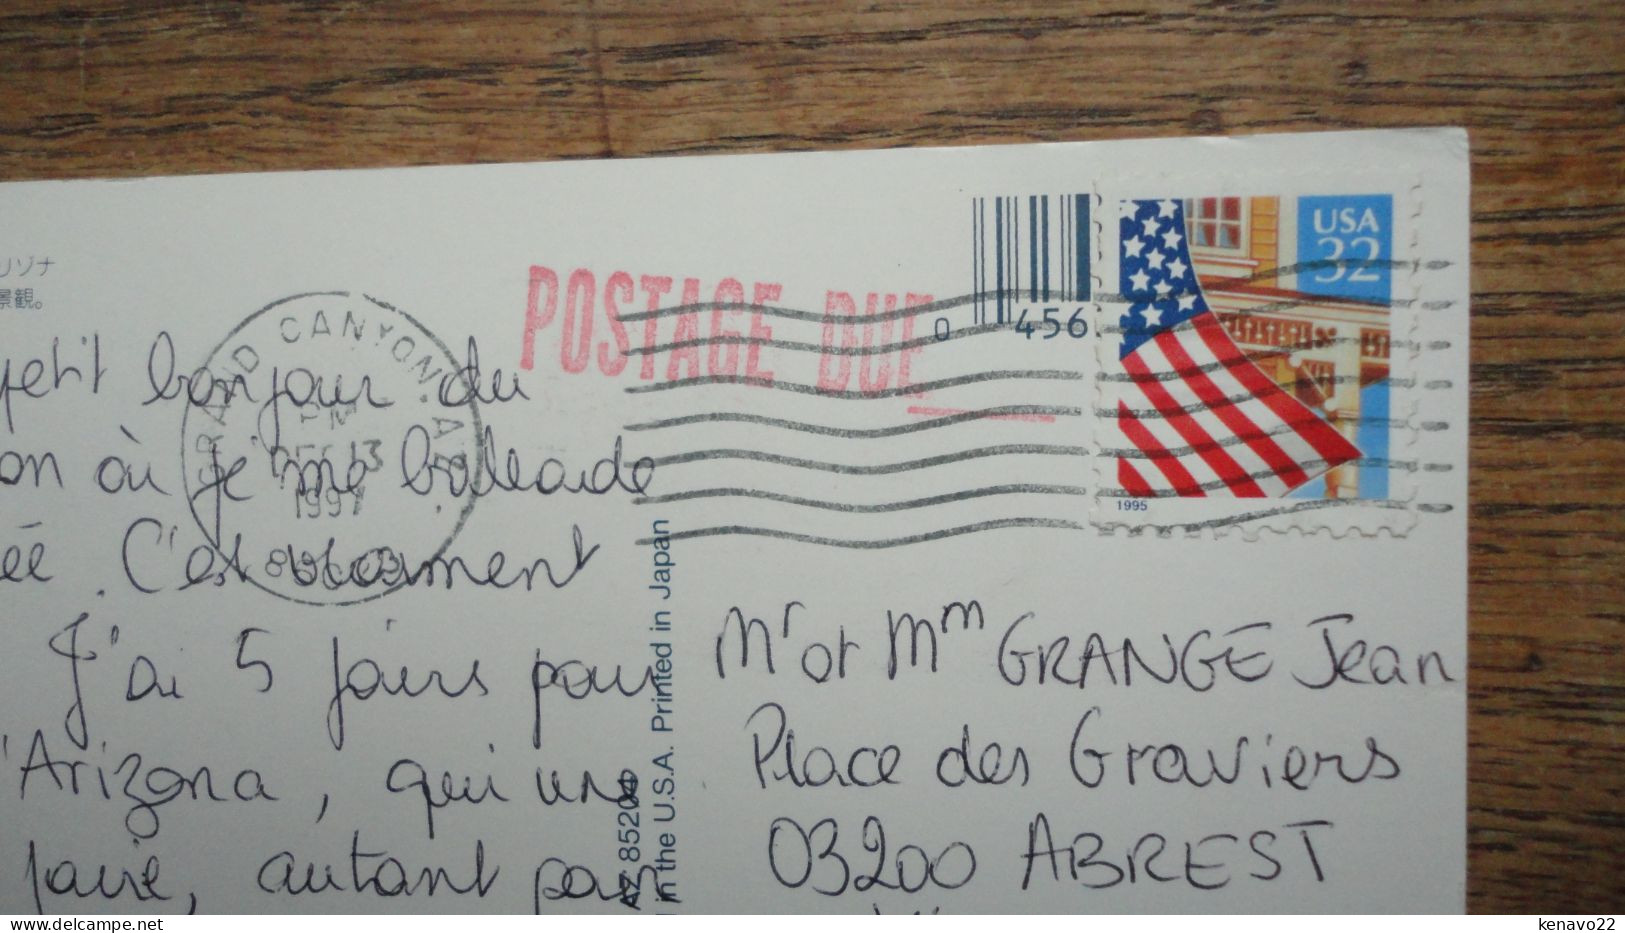 リゾナ
景観。
petit bonjour du
on où je me ballade
ée. C'est vraiment
J'ai 5 jours pour
'Arizona, qui une
autant par
GRAND CANYON. AZ
PM
DEC 13
1997
POSTAGE DUE
0 456
USA
32
1995
AZ 85204
in the U.S.A. Printed in Japan
Mr et Mm GRANGE Jean
Place des Graviers
03200 ABREST
delcampe.net
kenavo22